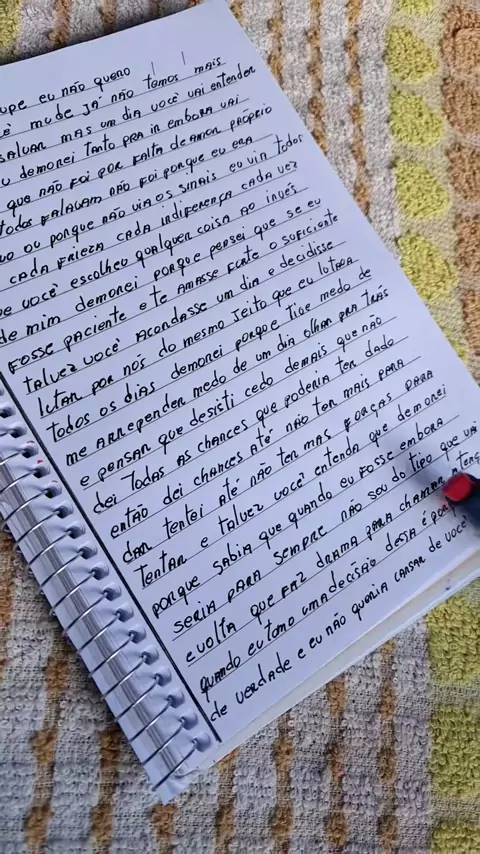 upe eu não quero
ê mude já não temos mais
salvar mas um dia você vai entender
demorei tanto pra in embora vai
que não foi por falta de amor próprio
todos falavam não foi porque eu era
ou porque não via os sinais eu vin todos
cada frieza cada indiferença cada vez
e você escolheu qualquer coisa ao invés
de mim demorei porque pensei que se eu
fosse paciente e te amasse forte o suficiente
talvez você acordasse um dia e decidisse
lutar por nós do mesmo jeito que eu lutava
todos os dias demorei porque tive medo de
me arrepender medo de um dia olhar pra trás
e pensar que desisti cedo demais que não
dei todas as chances que poderia ter dado
então dei chances até não ter mais para
dar tentei até não ten mas forças para
tentar e talvez você entenda que demorei
porque sabia que quando eu fosse embora
seria para sempre não sou do tipo que vai
e volta que faz drama para chamar
quando eu tomo uma decisão dessa é
de verdade e eu não queria cansar de você